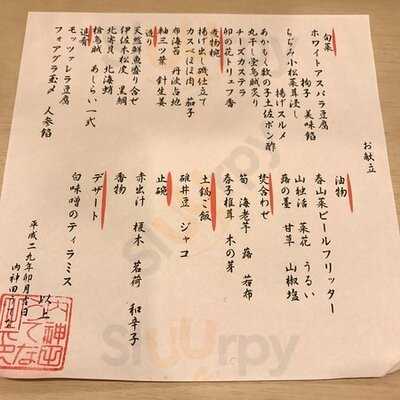 お献立
旬菜
ホワイトアスパラ豆腐
枸子 美味餡
ちぢみ小松菜耳浸し
揚げスルメ
あかもく数の子土佐ポン酢
丸干し蛍烏賊炙り
チーズカステラ
卯の花トリュフ香
煮物椀
揚げ出し磯仕立て
カスベほほ肉 茄子
布海苔 丹波占地
軸三ツ葉 針生姜
造り
天然鮮魚盛り合せ
伊佐木松皮 黒鯛
北寄貝 北海蛸
槍烏賊 あしらい一式
進肴
モッツァレラ豆腐
フォアグラ玉〆 人参餡
油物
春山菜ビールフリッター
山独活 菜花 うるい
蕗の薹 甘草 山椒塩
焚合わせ
筍 海老芋 蕗 若布
春子椎茸 木の芽
土鍋ご飯
碓井豆 ジャコ
止碗
赤出汁 榎木 茗荷 和辛子
香物
デザート
白味噌のティラミス
以上
平成二九年卯月吉日
内神田
Sluurpy